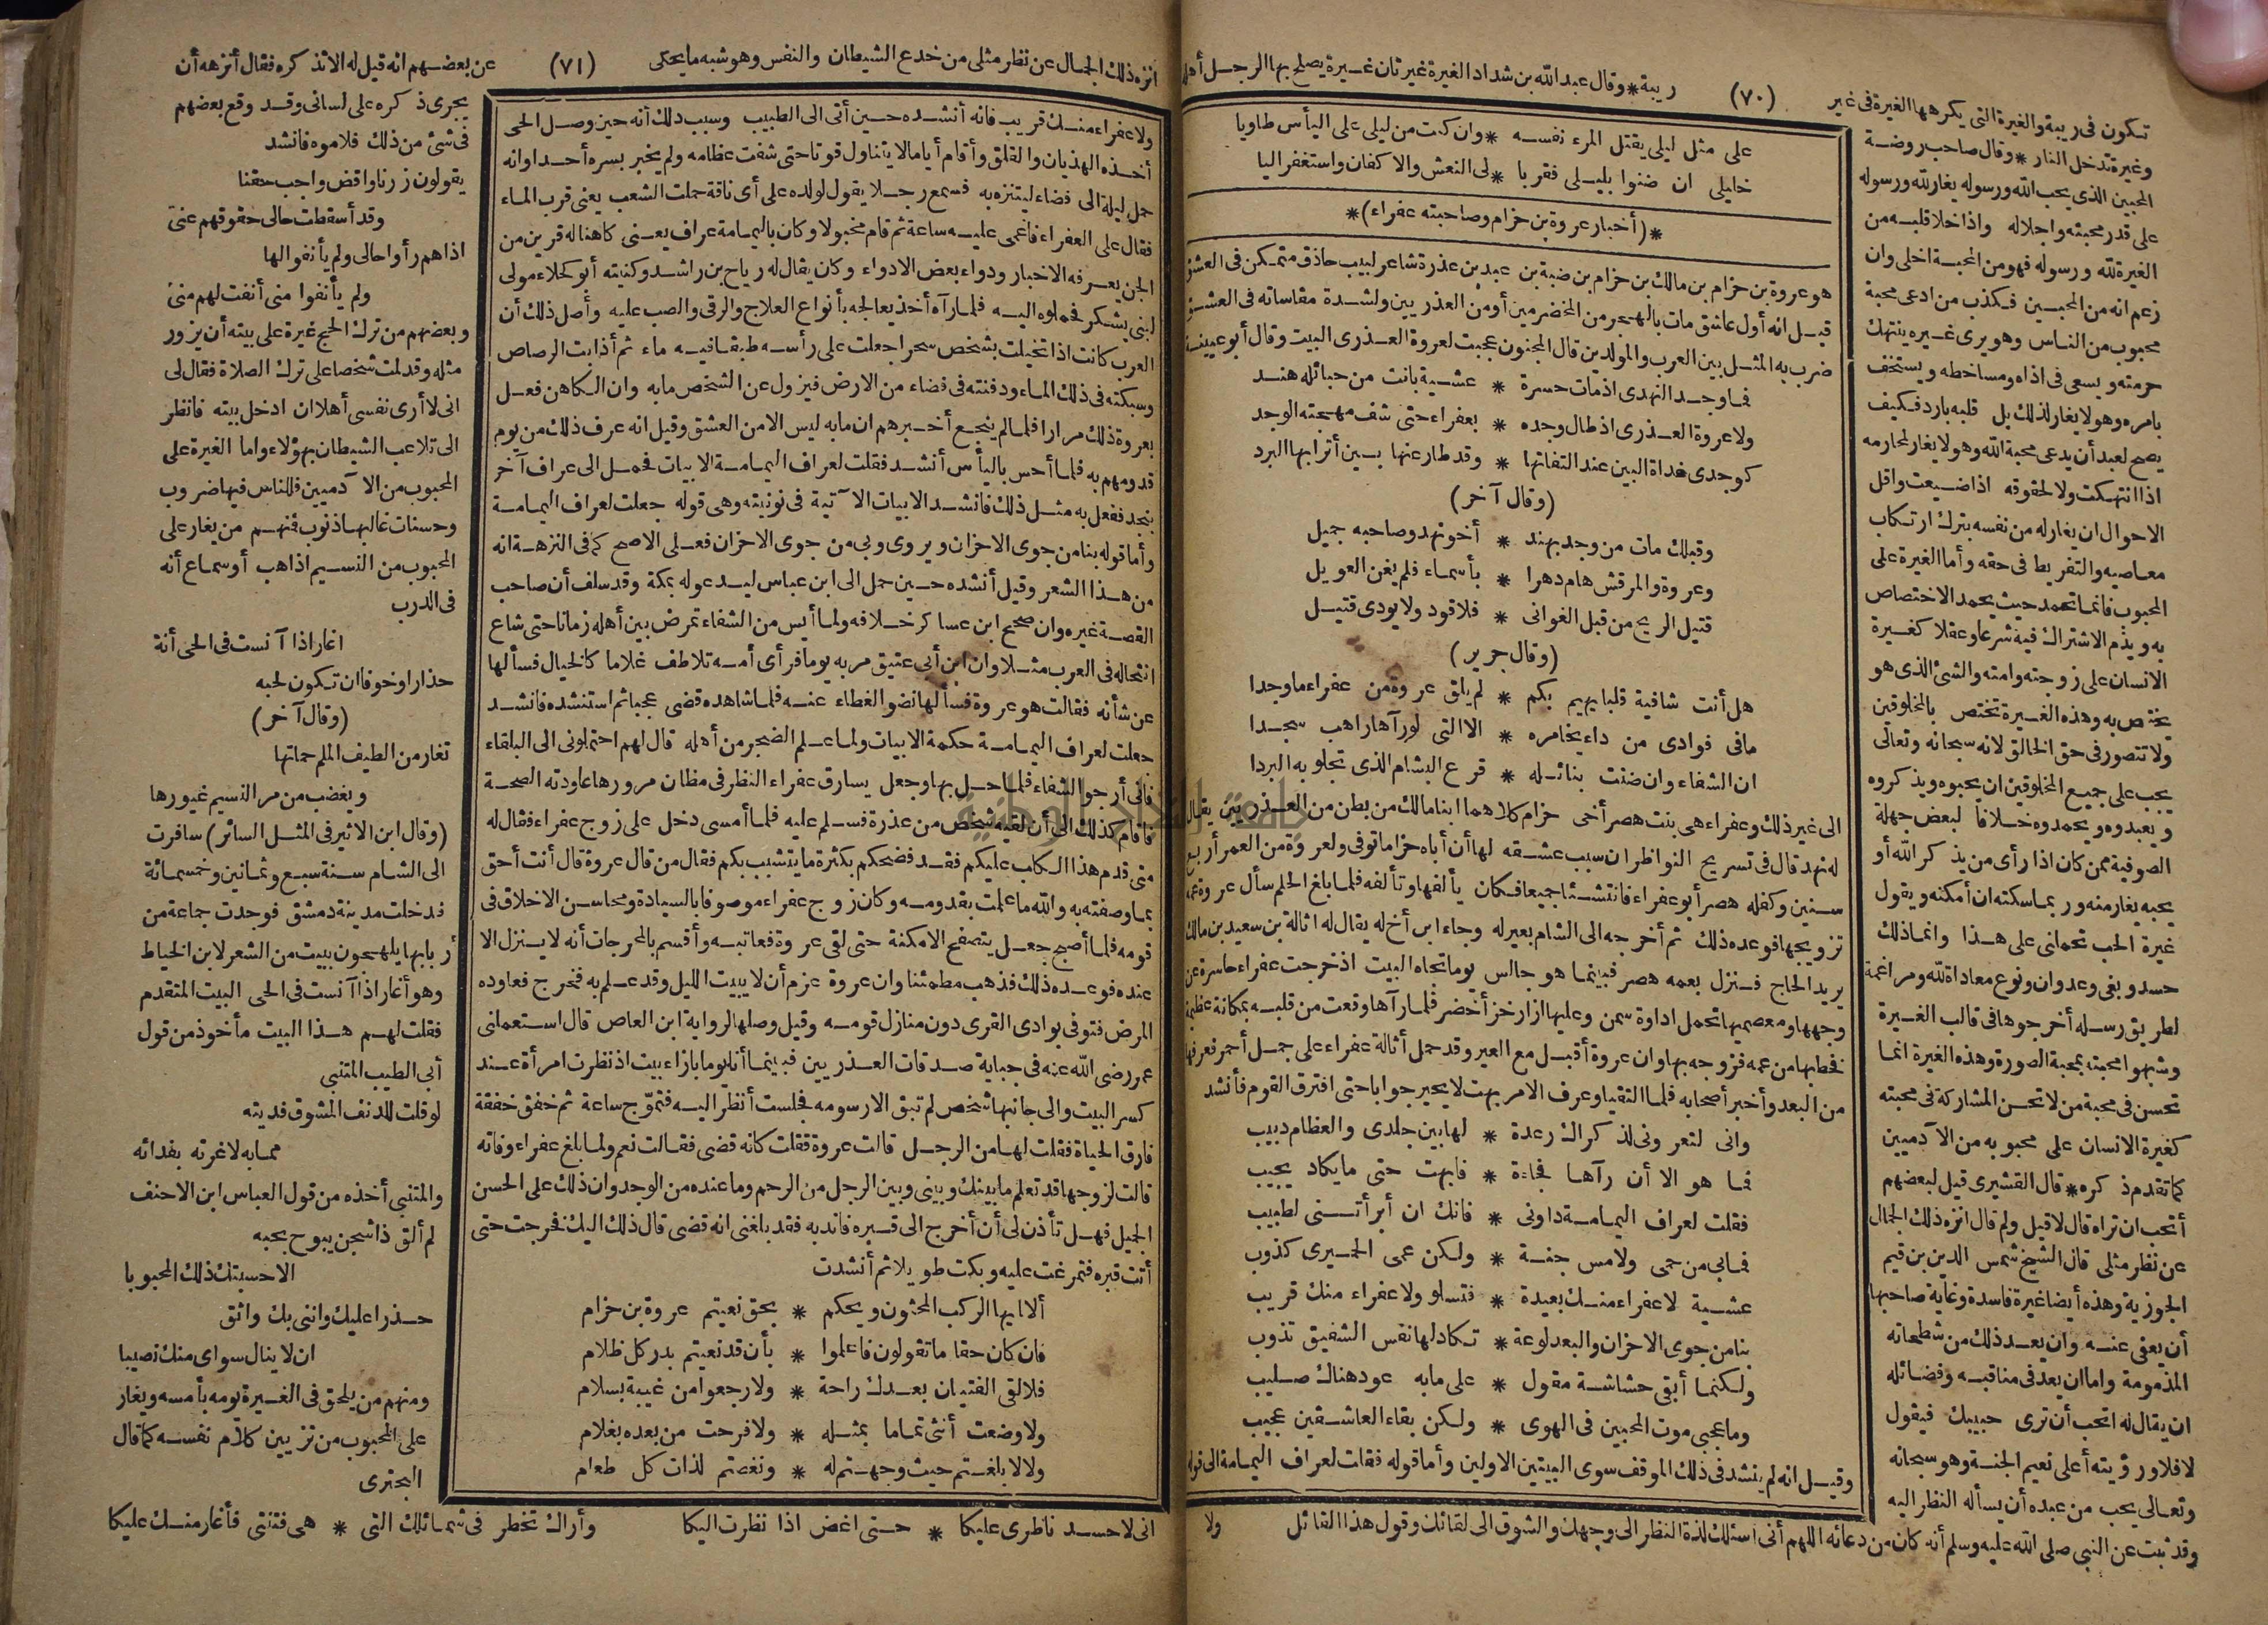 تكون فى ريبة والغيرة التى يكرهها الغيرة فى غير (٧٠) ريبة * وقال عبد الله بن شداد الغيرة غيرتان غيرة يصلح بها الرجل أهله
وغيرة تدخل النار * وقال صاحب روضة
المحبين الذى يحب الله ورسوله يغار لله ورسوله
على قدر محبته واجلاله واذا خلا قلبه من
الغيرة لله ورسوله فهو من المحبة اخلى وان
زعم انه من المحبين فكذب من ادعى محبة
محبوب من الناس وهو يرى غيره ينتهك
حرمته ويسعى فى اذاه ومساخطه ويستخف
بامره وهو لا يغار لذلك بل قلبه بارد فكيف
يصح لعبد أن يدعى محبة الله وهو لا يغار لمحارمه
اذا انتهكت ولا لحقوقه اذا ضيعت واقل
الاحوال ان يغار له من نفسه بترك ارتكاب
معاصيه والتفريط فى حقه وأما الغيرة على
المحبوب فانما تحمد حيث يحمد الاختصاص
به ويذم الاشتراك فيه شرعا وعقلا كغيرة
الانسان على زوجته وامته والشئ الذى هو
يختص به وهذه الغيرة تختص بالمخلوقين
ولا تتصور فى حق الخالق لانه سبحانه وتعالى
يجب على جميع المخلوقين ان يحبوه ويذكروه
ويعبدوه ويحمدوه خلافا لبعض جهلة
الصوفية ممن كان اذا رأى من يذكر الله أو
يحبه يغار منه وربما سكته ان أمكنه ويقول
غيرة الحب تحملنى على هذا وانما ذلك
حسد وبغى وعدوان ونوع معاداة لله ومراغمة
لطريق رسله أخرجوها فى قالب الغيرة
وشبهوا محبته بمحبة الصورة وهذه الغيرة انما
تحسن فى محبة من لا تحسن المشاركة فى محبته
كغيرة الانسان على محبوبه من الآدميين
كما تقدم ذكره * قال القشيرى قيل لبعضهم
أتحب ان تراه قال لا قيل ولم قال انزه ذلك الجمال
عن نظر مثلى قال الشيخ شمس الدين بن قيم
الجوزية وهذه أيضا غيرة فاسدة وغاية صاحبها
أن يعفى عنه وان يعد ذلك من شطحاته
المذمومة واما ان يعد فى مناقبه وفضائله
ان يقال له اتحب أن ترى حبيبك فيقول
لا فلا ورؤيته أعلى نعيم الجنة وهو سبحانه
وتعالى يحب من عبده أن يسأله النظر اليه
وقد ثبت عن النبى صلى الله عليه وسلم أنه كان من دعائه اللهم أنى اسئلك لذة النظر الى وجهك والشوق الى لقائك وقول هذا القائل
على مثل ليلى يقتل المرء نفسه * وان كنت من ليلى على اليأس طاويا
خليلى ان ضنوا بليلى فقربا * لى النعش والاكفان واستغفر اليا
* (أخبار عروة بن حزام وصاحبته عفراء) *
هو عروة بن حزام بن مالك بن حزام بن ضبة بن عبد بن عذرة شاعر لبيب حاذق متمكن فى العشق
قيل انه أول عاشق مات بالهجر من المخضرمين أو من العذريين ولشدة مقاساته فى العشق
ضرب به المثل بين العرب والمولدين قال المجنون عجبت لعروة العذرى البيت وقال أبو عيينة
فما وجد النهدى اذ مات حسرة * عشية بانت من حبائله هند
ولا عروة العذرى اذ طال وجده * بعفراء حتى شف مهجته الوجد
كوجدى غداة البين عند التفاتها * وقد طار عنها بين أترابها البرد
(وقال آخر)
وقبلك مات من وجد بهند * أخو نهد وصاحبه جميل
وعروة والمرقش هام دهرا * بأسماء فلم يغن العويل
قتيل الريح من قبل الغوانى * فلا قود ولا يودى قتيل
(وقال جرير)
هل أنت شافية قلبا يهيم بكم * لم يلق عروة من عفراء ما وجدا
ما فى فوادى من داء يخامره * الا التى لو رآها راهب سجدا
ان الشفاء وان ضنت بنائله * فرع البشام الذى تجلو به البردا
الى غير ذلك وعفراء هى بنت هصر أخى حزام كلاهما ابنا مالك من بطن من العذريين يقال
له نهد قال فى تسريح النواظر ان سبب عشقه لها أن أباه حزاما توفى ولعروة من العمر أربع
سنين وكفله هصر أبو عفراء فانتشئا جميعا فكان يألفها وتألفه فلما بلغ الحلم سأل عروة عمه
تزويجها فوعده ذلك ثم أخرجه الى الشام بعير له وجاء ابن أخ له يقال له اثالة بن سعيد بن مالك
يريد الحاج فنزل بعمه هصر فبينما هو جالس يوما تجاه البيت اذ خرجت عفراء حاسرة عن
وجهها ومعصميها تحمل اداوة سمن وعليها ازار خز أخضر فلما رآها وقعت من قلبه بمكانة عظيمة
فخطبها من عمه فزوجه بها وان عروة أقبل مع العير وقد حمل أثالة عفراء على جمل أحمر فعرفها
من البعد وأخبر أصحابه فلما التقيا وعرف الامر بهت لا يحير جوابا حتى افترق القوم فأنشد
وانى لتعرونى لذكراك رعدة * لها بين جلدى والعظام دبيب
فما هو الا أن رآها فجاءة * فابهت حتى ما يكاد يجيب
فقلت لعراف اليمامة داونى * فانك ان أبرأتنى لطبيب
فمابى من حمى ولا مس جنة * ولكن عمى الحميرى كذوب
عشية لا عفراء منك بعيدة * فتسلو ولا عفراء منك قريب
بنا من جوى الاحزان والبعد لوعة * تكاد لها نفس الشفيق تذوب
ولكنما أبقى حشاشة مقول * على ما به عود هناك صليب
وما عجبى موت المحبين فى الهوى * ولكن بقاء العاشقين عجيب
وقيل انه لم ينشد فى ذلك الموقف سوى البيتين الاولين وأما قوله فقلت لعراف اليمامة الى قوله
ولا
انزه ذلك الجمال عن نظر مثلى من خدع الشيطان والنفس وهو شبه ما يحكى (٧١) عن بعضهم انه قيل له الا تذكره فقال أنزهه أن
ولا عفراء منك قريب فانه أنشده حين أتى الى الطبيب وسبب ذلك أنه حين وصل الحى
أخذه الهذيان والقلق وأقام أياما لا يتناول قوتا حتى شفت عظامه ولم يخبر بسره أحدا وانه
حمل ليلة الى فضاء ليتنزه به فسمع رجلا يقول لولده على أى ناقة حملت الشعب يعنى قرب الماء
فقال على العفراء فاغمى عليه ساعة ثم قام مخبولا وكان باليمامة عراف يعنى كاهنا له قرين من
الجن يعرفه الاخبار ودواء بعض الادواء وكان يقال له رياح بن راشد وكنيته أبو كحلاء مولى
لبنى يشكر فحملوه اليه فلما رآه أخذ يعالجه بأنواع العلاج والرقى والصب عليه وأصل ذلك أن
العرب كانت اذا تخيلت بشخص سحرا جعلت على رأسه طبقا فيه ماء ثم أذابت الرصاص
وسبكته فى ذلك الماء ودفنته فى فضاء من الارض فيزول عن الشخص ما به وان الكاهن فعل
بعروة ذلك مرارا فلما لم ينجع أخبرهم ان ما به ليس الا من العشق وقيل انه عرف ذلك من يوم
قدومهم به فلما أحس باليأس أنشد فقلت لعراف اليمامة الابيات فحمل الى عراف آخر
بنجد ففعل به مثل ذلك فانشد الابيات الآتية فى نونيته وهى قوله جعلت لعراف اليمامة
وأما قوله بنا من جوى الاحزان ويروى وبى من جوى الاحزان فعلى الاصح كما فى النزهة انه
من هذا الشعر وقيل أنشده حين حمل الى ابن عباس ليدعو له بمكة وقد سلف أن صاحب
القصة غيره وان صحح ابن عساكر خلافه ولما أيس من الشفاء تمرض بين أهله زمانا حتى شاع
انتحاله فى العرب مثلا وان ابن أبى عتيق مر به يوما فرأى أمه تلاطف غلاما كالخيال فسألها
عن شأنه فقالت هو عروة فسألها نضو الغطاء عنه فلما شاهده قضى عجبا ثم استنشده فانشد
جعلت لعراف اليمامة حكمة الابيات ولما علم الضجر من أهله قال لهم احتملونى الى البلقاء
فانى أرجو الشفاء فلما حل بها وجعل يسارق عفراء النظر فى مظان مرورها عاودته الصحة
فاقام كذلك الى أن لقيه شخص من عذرة فسلم عليه فلما أمسى دخل على زوج عفراء فقال له
متى قدم هذا الكلب عليكم فقد فضحكم بكثرة ما يتشبب بكم فقال من قال عروة قال أنت أحق
بما وصفته به والله ما علمت بقدومه وكان زوج عفراء موصوفا بالسيادة ومحاسن الاخلاق فى
قومه فلما أصبح جعل يتصفح الامكنة حتى لقى عروة فعاتبه وأقسم بالمحرجات أنه لا ينزل الا
عنده فوعده ذلك فذهب مطمئنا وان عروة عزم أن لا يبيت الليل وقد علم به فخرج فعاوده
المرض فتوفى بوادى القرى دون منازل قومه وقيل وصلها لرواية ابن العاص قال استعملنى
عمر رضى الله عنه فى جباية صدقات العذريين فبينما أنا يوما بازاء بيت اذ نظرت امرأة عند
كسر البيت والى جانبها شخص لم تبق الا رسومه فجلست أنظر اليه فتموّج ساعة ثم خفق خفقة
فارق الحياة فقلت لها من الرجل قالت عروة فقلت كانه قضى فقالت نعم ولما بلغ عفراء وفاته
قالت لزوجها قد تعلم ما بينك وبينى وبين الرجل من الرحم وما عنده من الوجد وان ذلك على الحسن
الجميل فهل تأذن لى أن أخرج الى قبره فاندبه فقد بلغنى انه قضى قال ذلك اليك فخرجت حتى
أتت قبره فتمرغت عليه وبكت طويلا ثم أنشدت
ألا ايها الركب المحثون ويحكم * بحق نعيتم عروة بن حزام
فان كان حقا ما تقولون فاعلموا * بأن قد نعيتم بدر كل ظلام
فلا لقى الفتيان بعدك راحة * ولا رجعوا من غيبة بسلام
ولا وضعت أنثى تماما بمثله * ولا فرحت من بعده بغلام
ولا لا بلغتم حيث وجهتم له * ونغصتم لذات كل طعام
يجرى ذكره على لسانى وقد وقع بعضهم
فى شئ من ذلك فلاموه فانشد
يقولون زرنا واقض واجب حقنا
وقد أسقطت حالى حقوقهم عنى
اذا هم رأوا حالى ولم يأنفوا لها
ولم يأنفوا منى أنفت لهم منى
وبعضهم من ترك الحج غيرة على بيته أن يزور
مثله وقد لمت شخصا على ترك الصلاة فقال لى
انى لا أرى نفسى أهلا ان ادخل بيته فانظر
الى تلاعب الشيطان بهؤلاء واما الغيرة على
المحبوب من الآدميين فللناس فيها ضروب
وحسنات غالبها ذنوب فمنهم من يغار على
المحبوب من النسيم اذا هب أو سماع أنه
فى الدرب
اغار اذا آنست فى الحى أنة
حذارا وخوفا ان تكون لحبه
(وقال آخر)
تغار من الطيف الملم حماتها
ويغضب من مر النسيم غيورها
(وقال ابن الاثير فى المثل السائر) سافرت
الى الشام سنة سبع وثمانين وخمسمائة
فدخلت مدينة دمشق فوجدت جماعة من
أربابها يلهجون ببيت من الشعر لابن الخياط
وهو أغار اذا آنست فى الحى البيت المتقدم
فقلت لهم هذا البيت مأخوذ من قول
أبى الطيب المتنبى
لو قلت للدنف المشوق فديته
مما به لاغرته بفدائه
والمتنبى أخذه من قول العباس ابن الاحنف
لم ألق ذا شجن يبوح بحبه
الا حسبتك ذلك المحبوبا
حذرا عليك واننى بك واثق
ان لا ينال سواى منك نصيبا
ومنهم من يلحق فى الغيرة يومه بأمسه ويغار
على المحبوب من تزيين كلام نفسه كما قال
البحترى
انى لاحسد ناظرى عليكا * حتى اغض اذا نظرت اليكا وأراك تخطر فى شمائلك التى * هى فتنتى فأغار منك عليكا